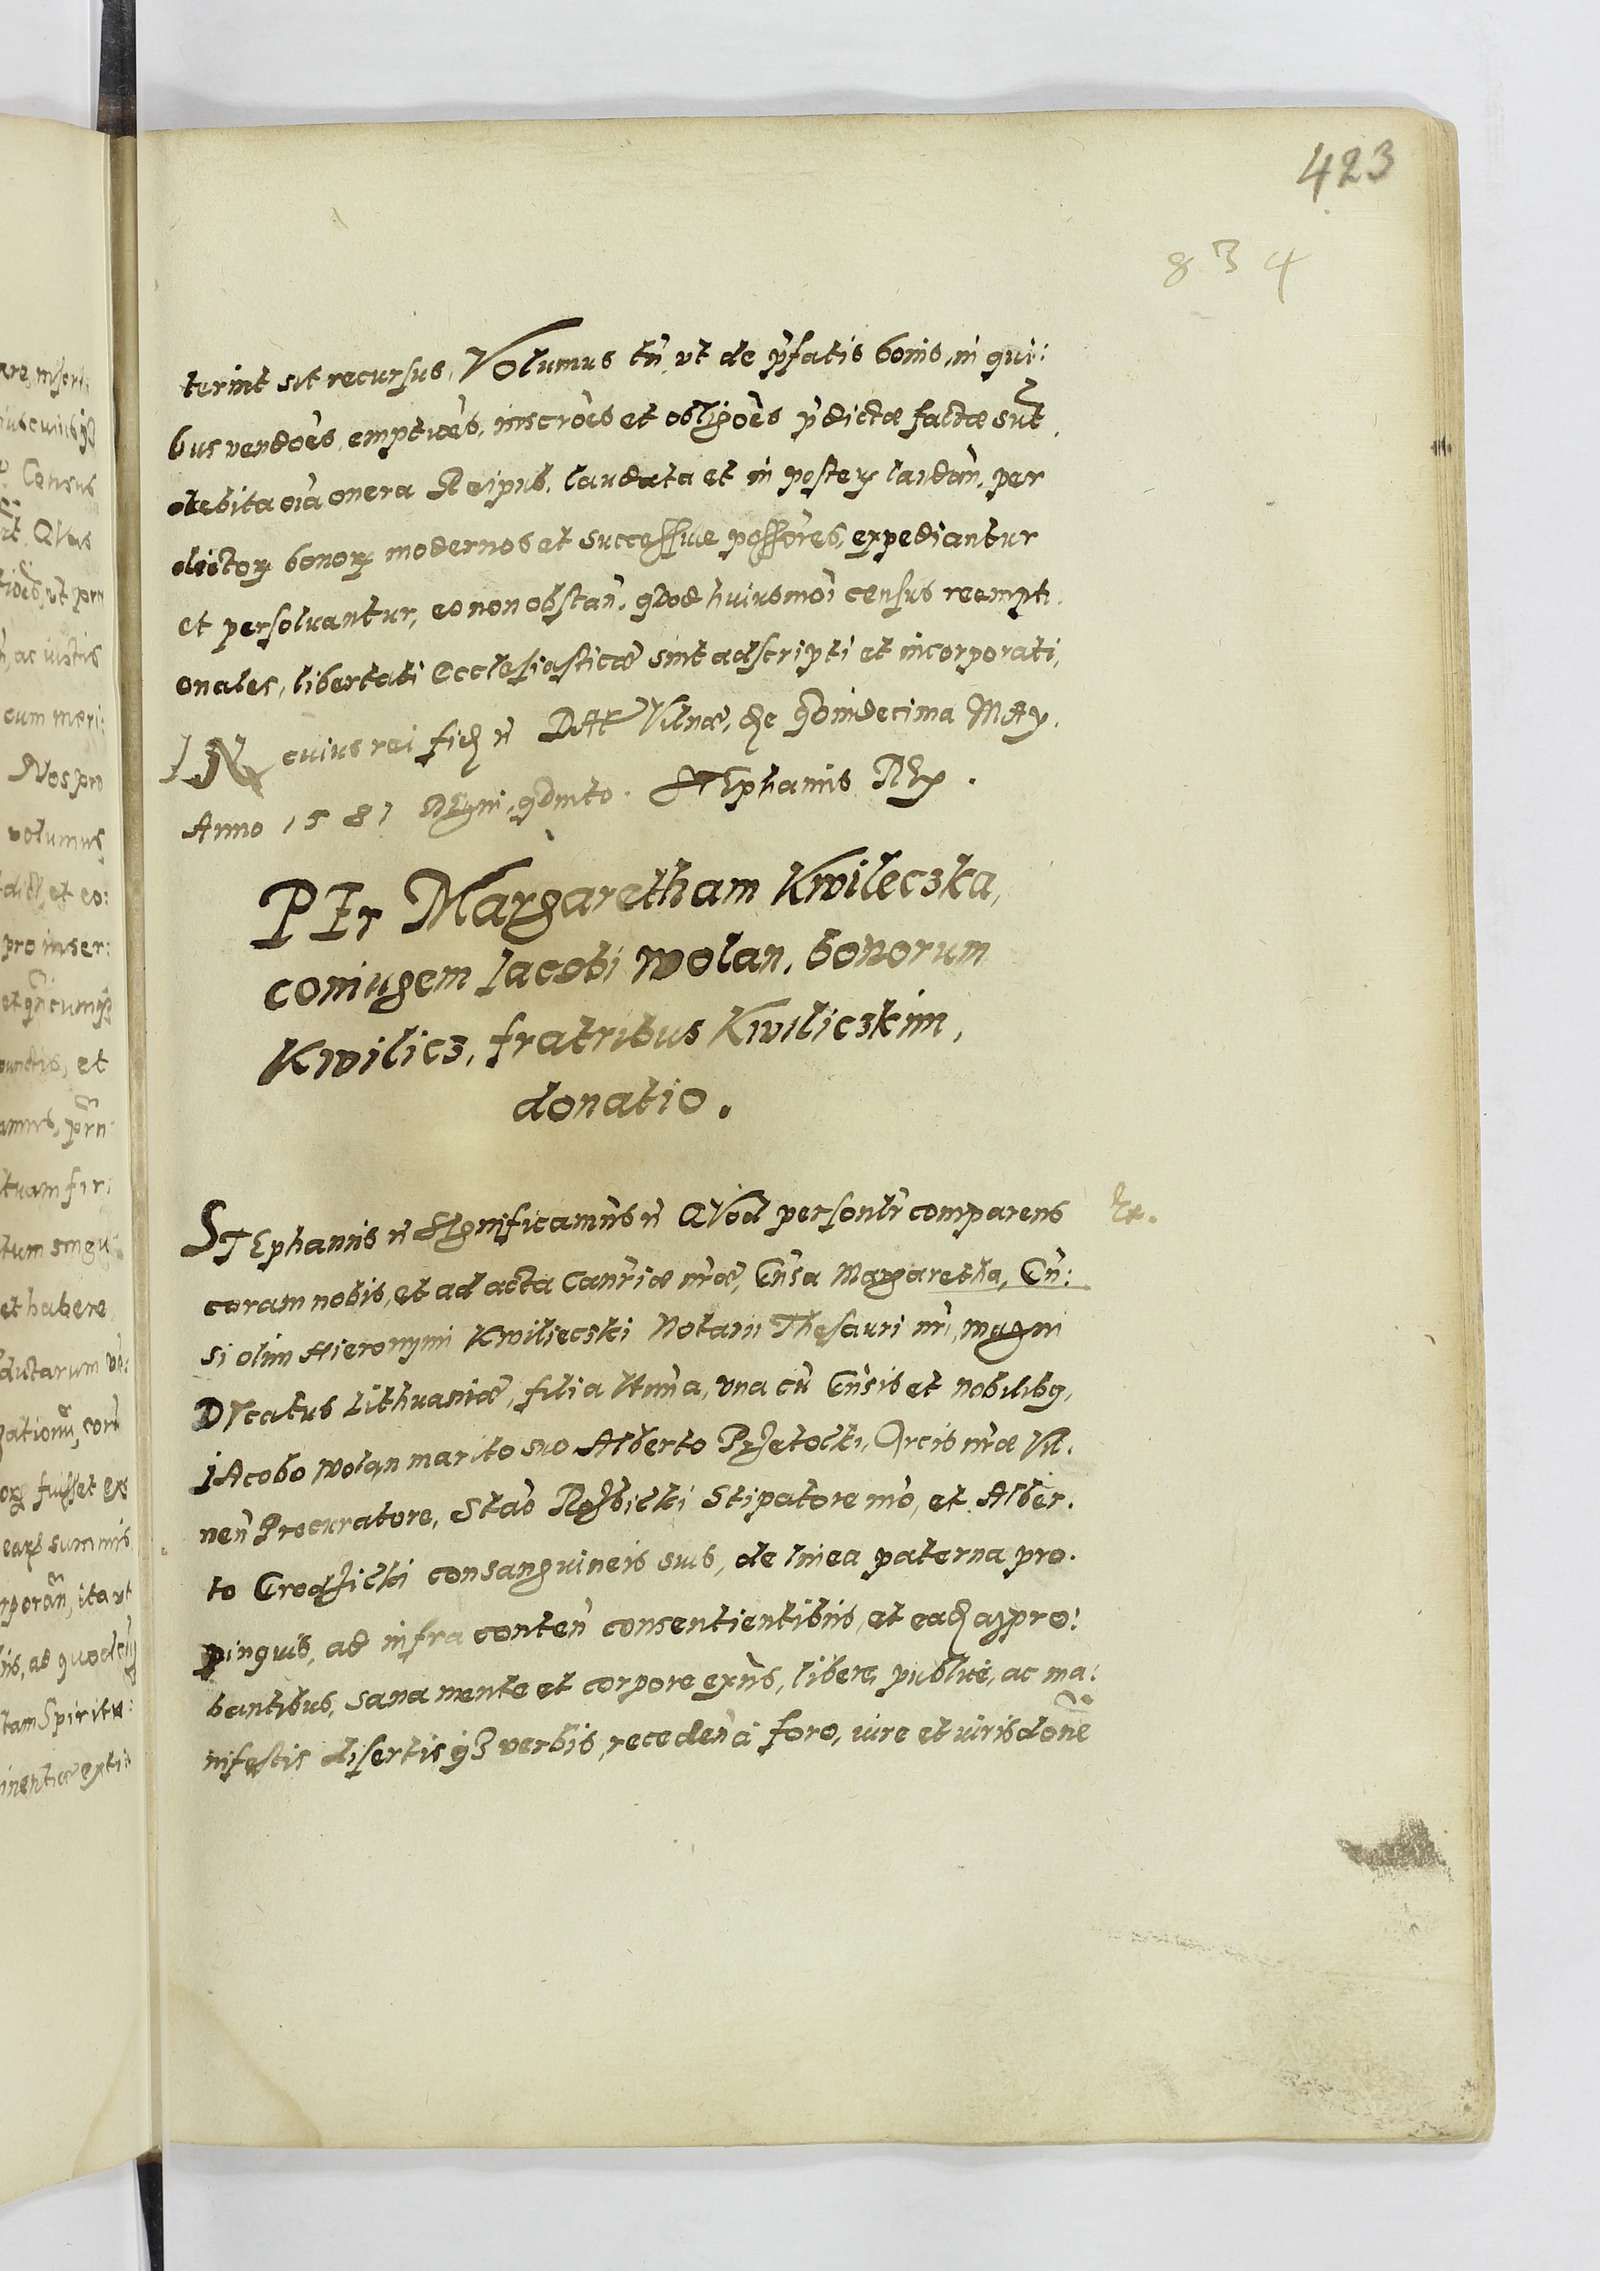 423
834
terint sit recursus, Volumus tn̄, vt de p̄fatis bonis, in qui:
bus vendoēs, emptioēs, inscroēs et obligoēs p̄dictæ factæ sūt
debita oīa onera Reipub. laudata et in posterꝝ laudan̄, per
dictorꝝ bonorꝝ modernos et successiue possōres, expediantur
et persoluantur, eo non obstan̄, qđod huiusmōi census reempti
onales, libertati Ecclesiasticæ sint adscripti et incorporati,
IN cuius rei fid n̄ DAt Vilnæ, die qđindecima MAY.
Anno 1581 REgni, qđinto. STEphanus REx.
PEr Margaretham Kwileczka,
coniugem Iacobi Wolan, bonorum
Kwilicz, fratribus Kwiliczkim,
donatio.
STEphanus n̄ SIgnificamus n̄ QVod personlr̄ comparens
coram nobis, et ad acta Canr̄iæ nr̄æ, Gn̄sa Margaretha, Gn̄:
si olim Hieronymi Kwiliecski Notarii Thesauri nr̄i, magni
DVcatus Lithuaniæ, filia , vna cū Gn̄sis et nobilibꝫ,
IAcobo Wolan marito suo Alberto Przetocki, Arcis nr̄æ Vil.
nen̄ Procuratore, Stao Stipatore nr̄o, et Alber.
to Grodzicki consanguineis suis, de linea paterna pro.
pinquis, ad infra conten̄ consentientibus, et ead appro:
bantibus, sana mente et corpore exn̄s, libere, publice, ac ma:
nifestis disertis qꝫ verbis, receden̄ à foro, iure et iurisdone